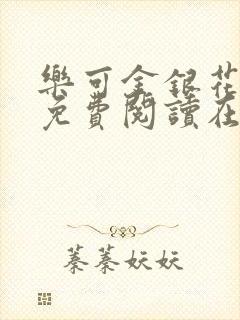 樂可金銀花
免費閱讀在
蓁蓁妖妖